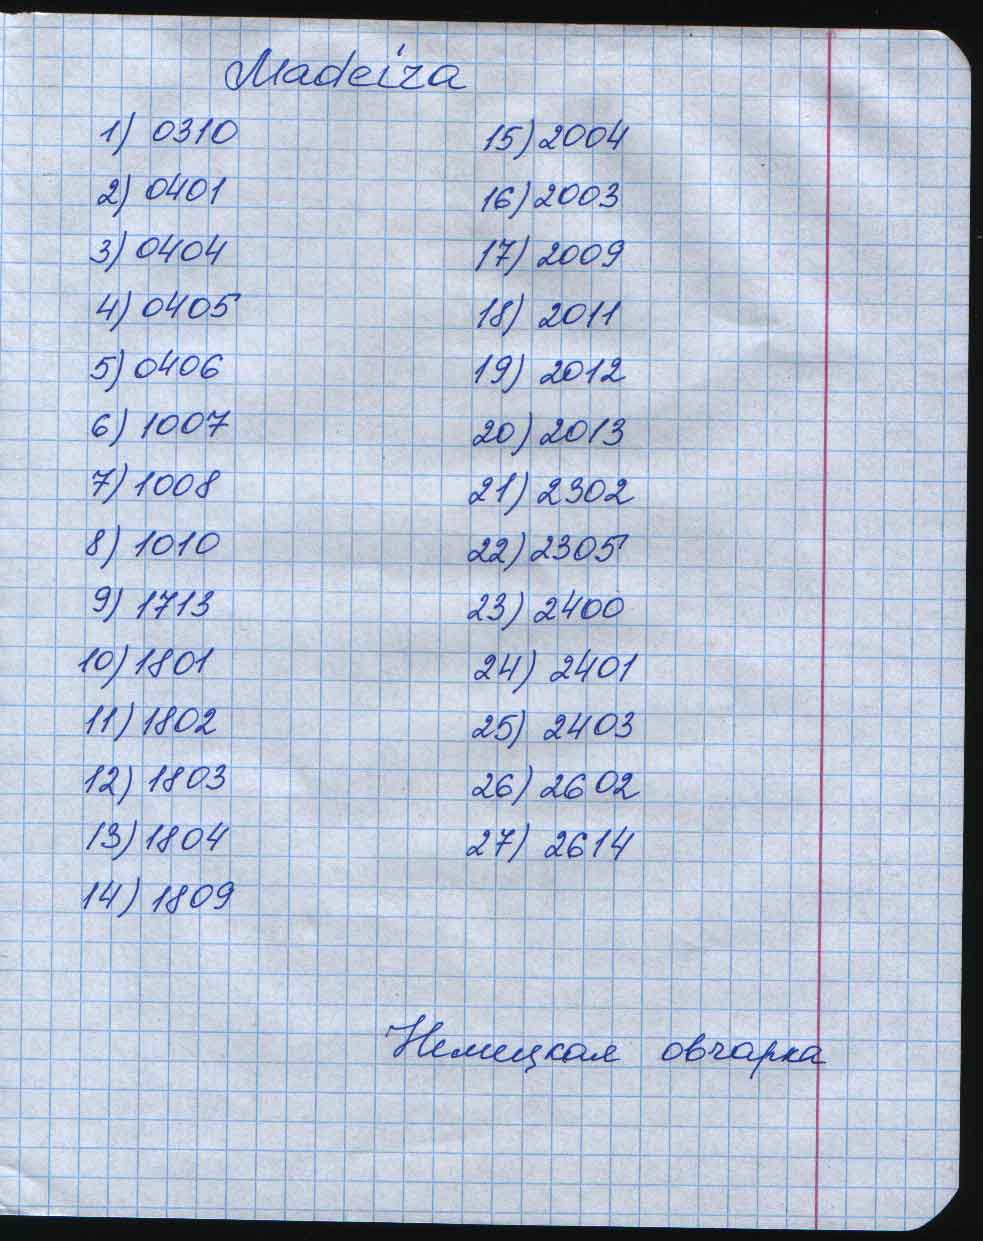 Madeira
1) 0310
2) 0401
3) 0404
4) 0405
5) 0406
6) 1007
7) 1008
8) 1010
9) 1713
10) 1801
11) 1802
12) 1803
13) 1804
14) 1809
15) 2004
16) 2003
17) 2009
18) 2011
19) 2012
20) 2013
21) 2302
22) 2305
23) 2400
24) 2401
25) 2403
26) 2602
27) 2614
Немецкая овчарка